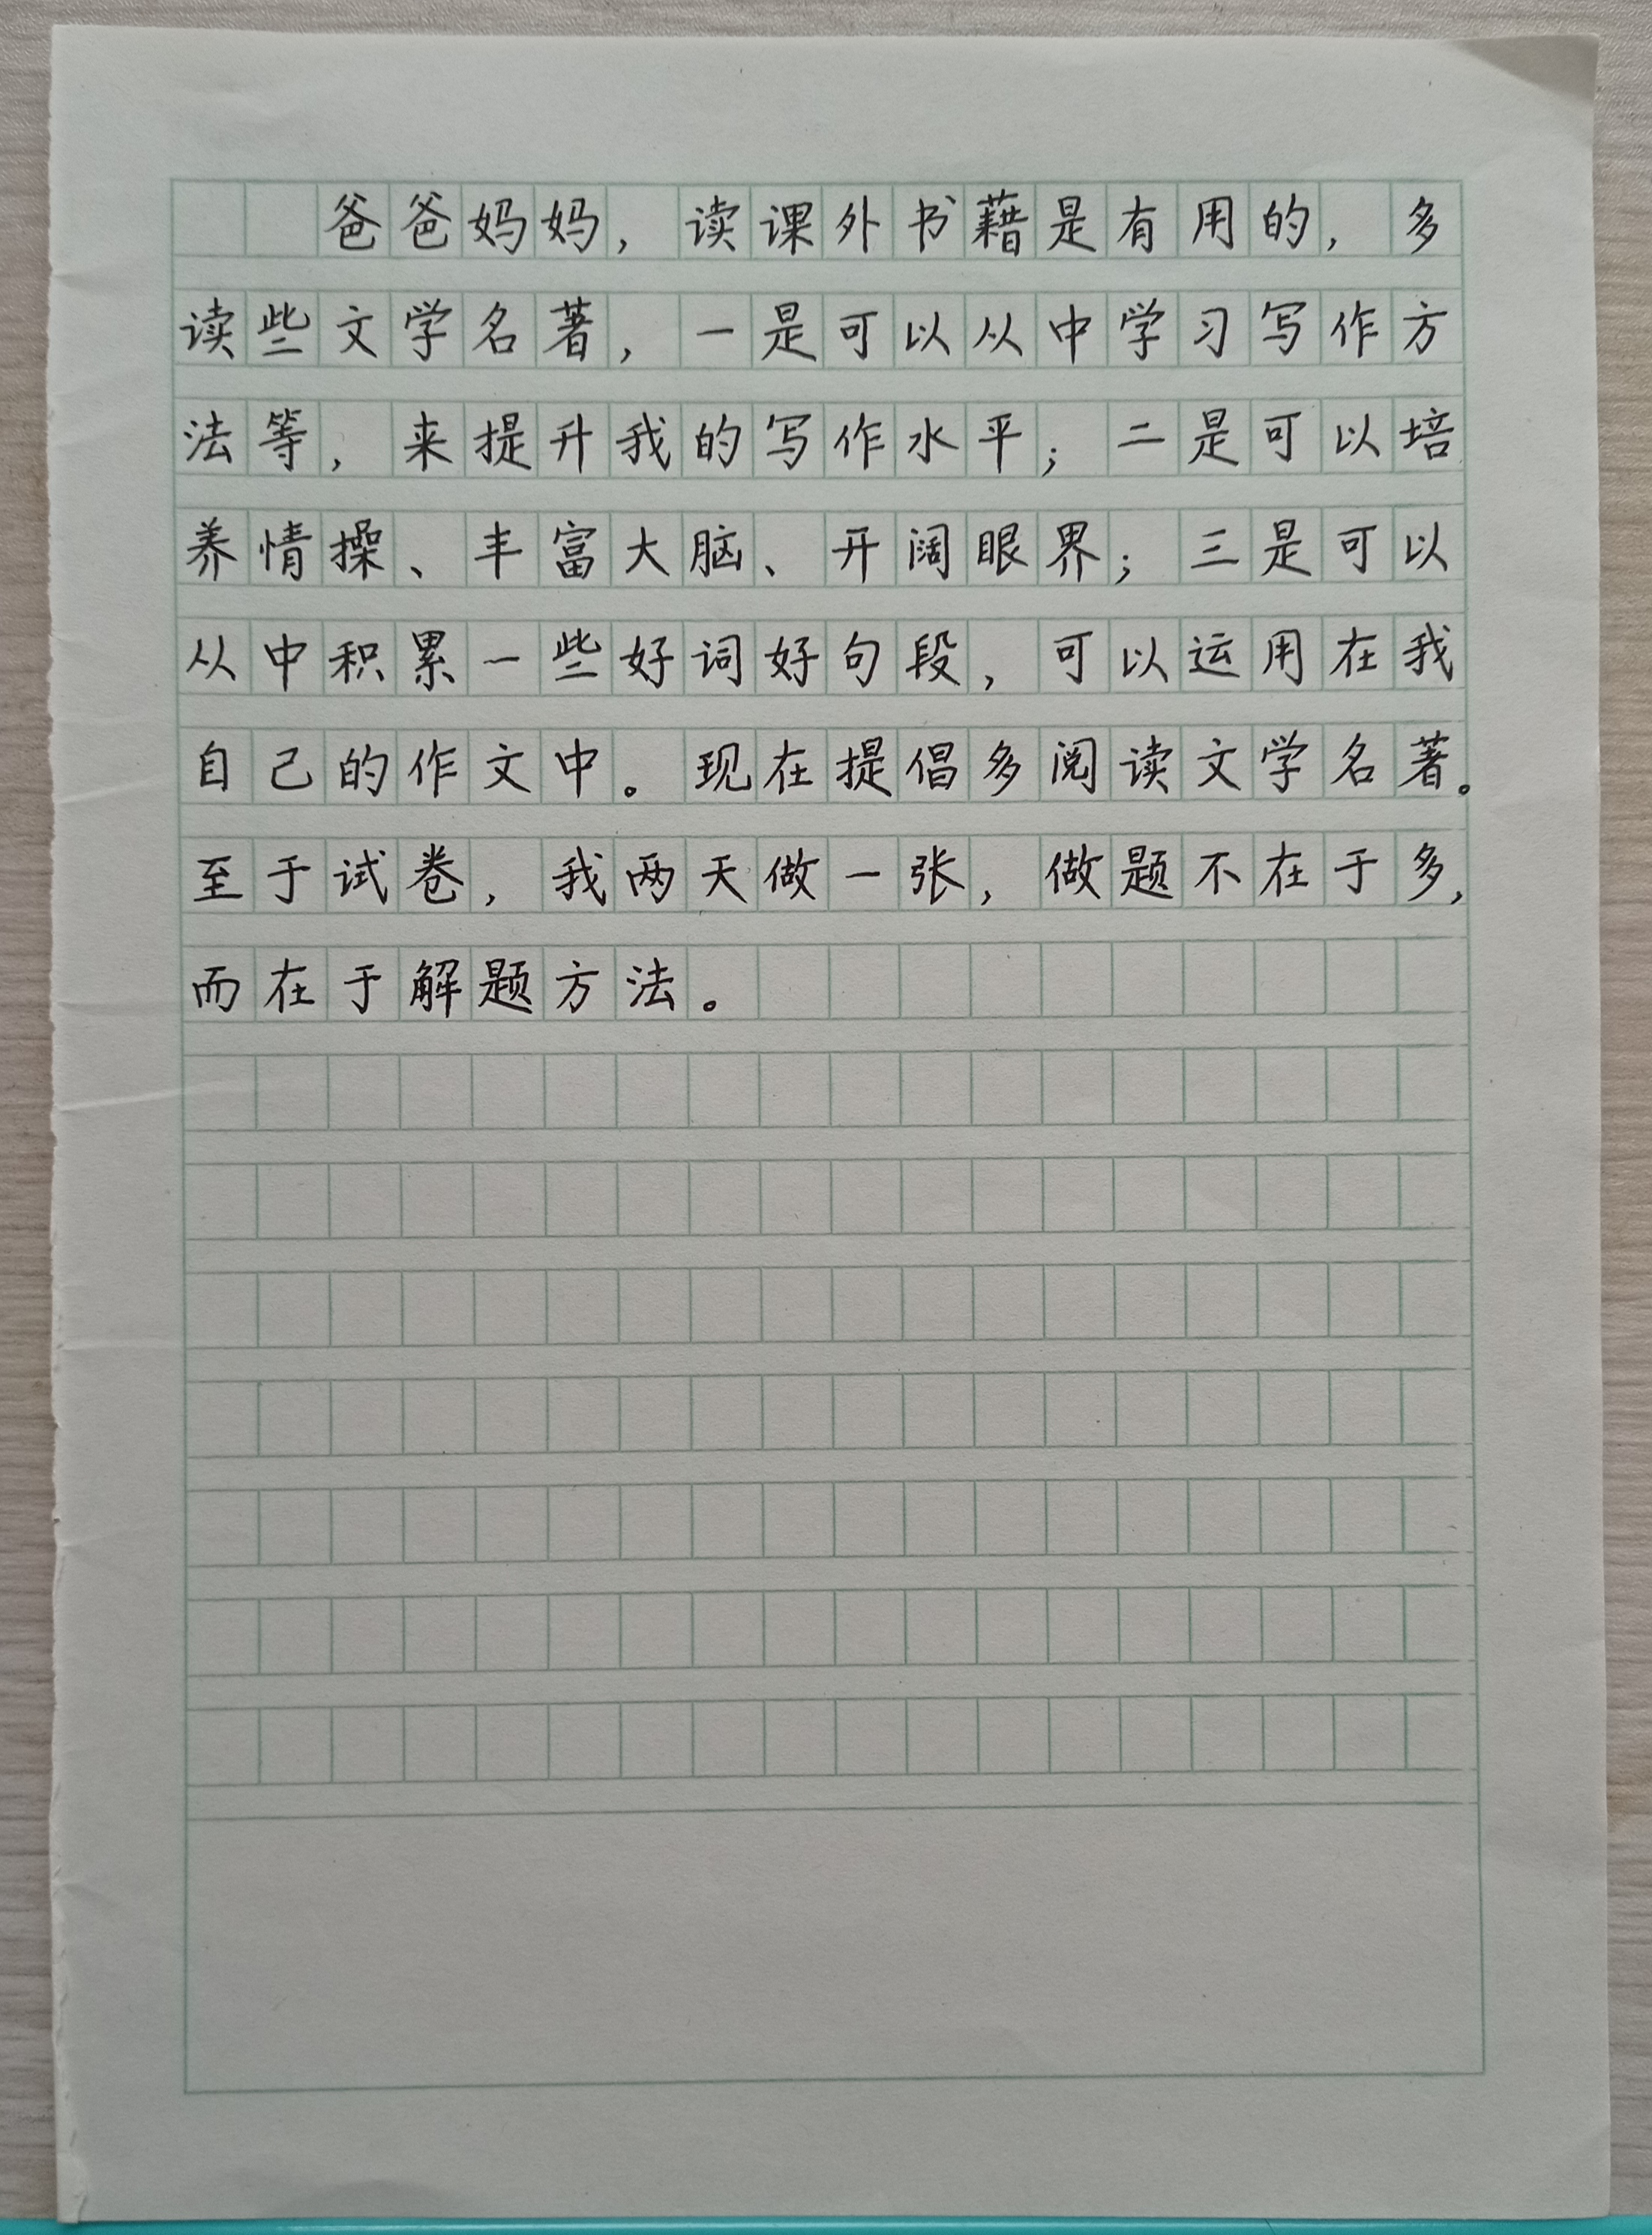 爸爸妈妈，读课外书藉是有用的，多
读些文学名著，一是可以从中学习写作方
法等，来提升我的写作水平；二是可以培
养情操、丰富大脑、开阔眼界；三是可以
从中积累一些好词好句段，可以运用在我
自己的作文中。现在提倡多阅读文学名著。
至于试卷，我两天做一张，做题不在于多，
而在于解题方法。